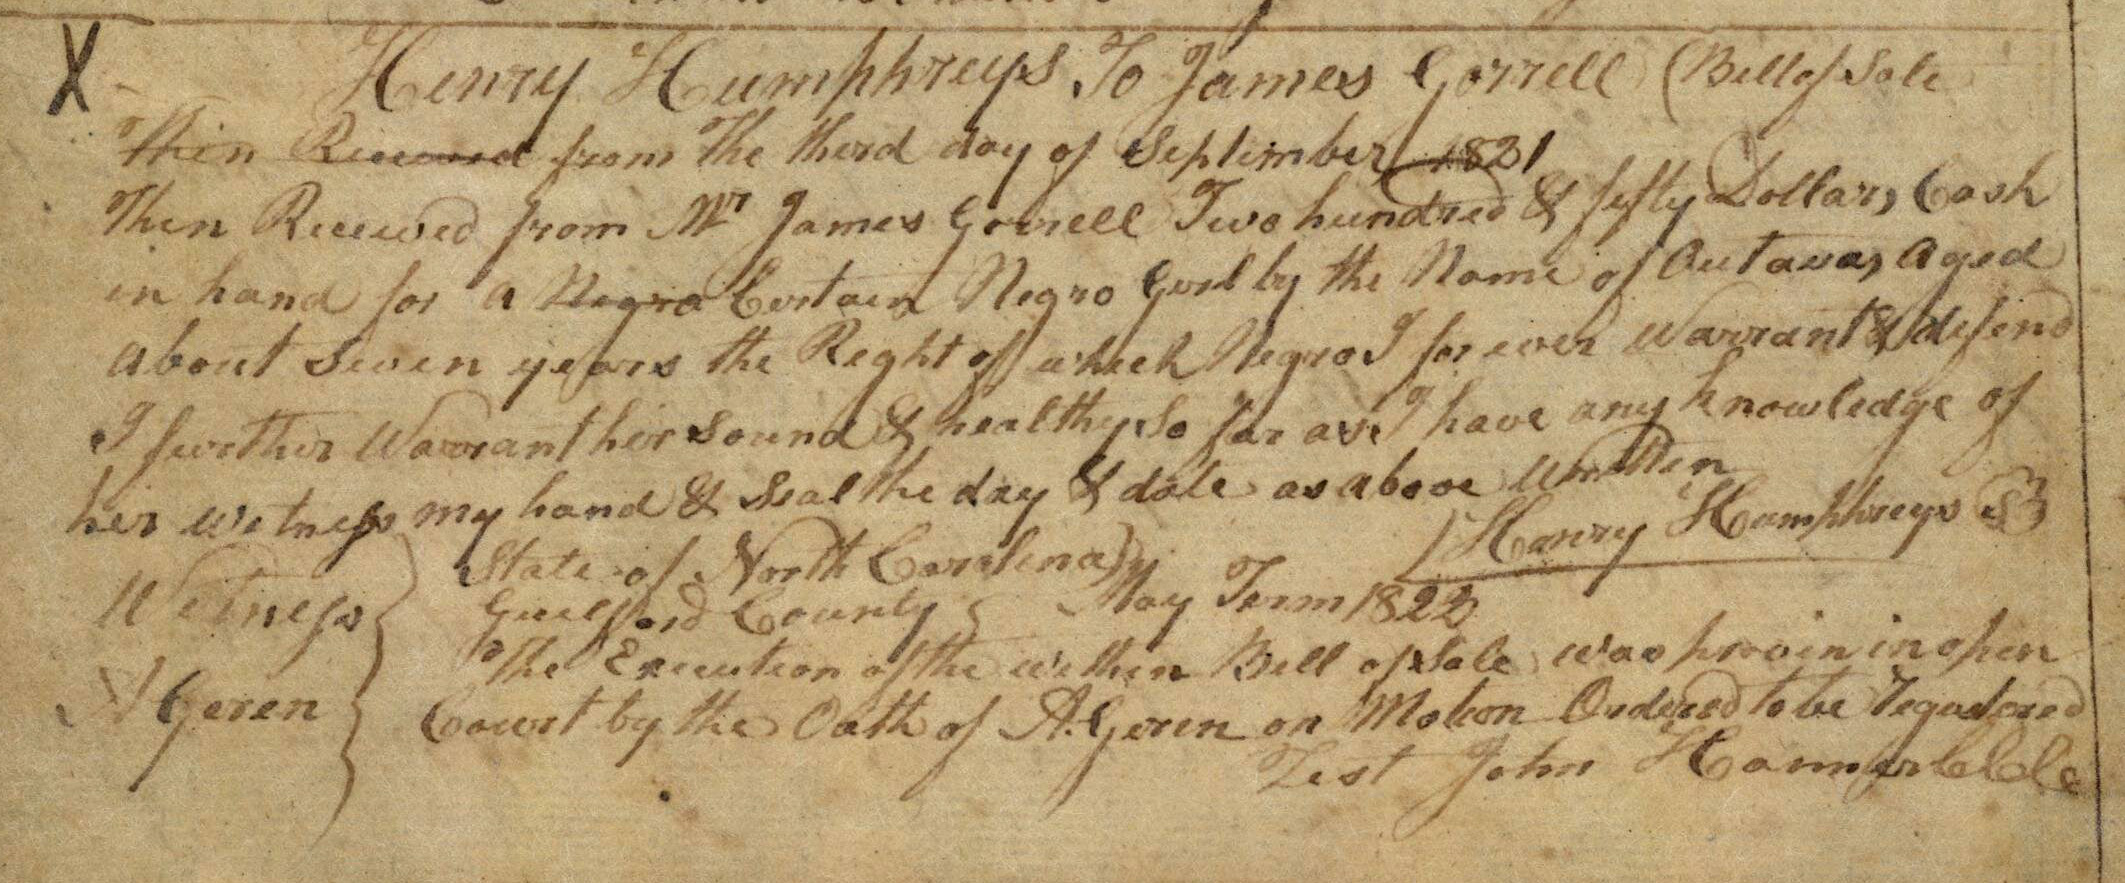 X
Henry Humphreys To James Gorrell (Bill of Sale
Then Received from The third day of September 1821
Then Received from Mr James Gorrell Two hundred & fifty Dollars Cash
in hand for a Negro Certain Negro Girl by the Name of Aged
about Seven years the Right of which Negro I for ever Warrant & defend
I further Warrant her Sound & healthy So far as I have any knowledge of
her Witness my hand & Seal the day & date as above Written
Henry Humphreys
State of North Carolina
Guilford County May Term
Witness
The Execution of the within Bill of Sale was proven in open
A Geren
Court by the Oath of A. Geren on Motion Ordered to be registered
Test John Hanner